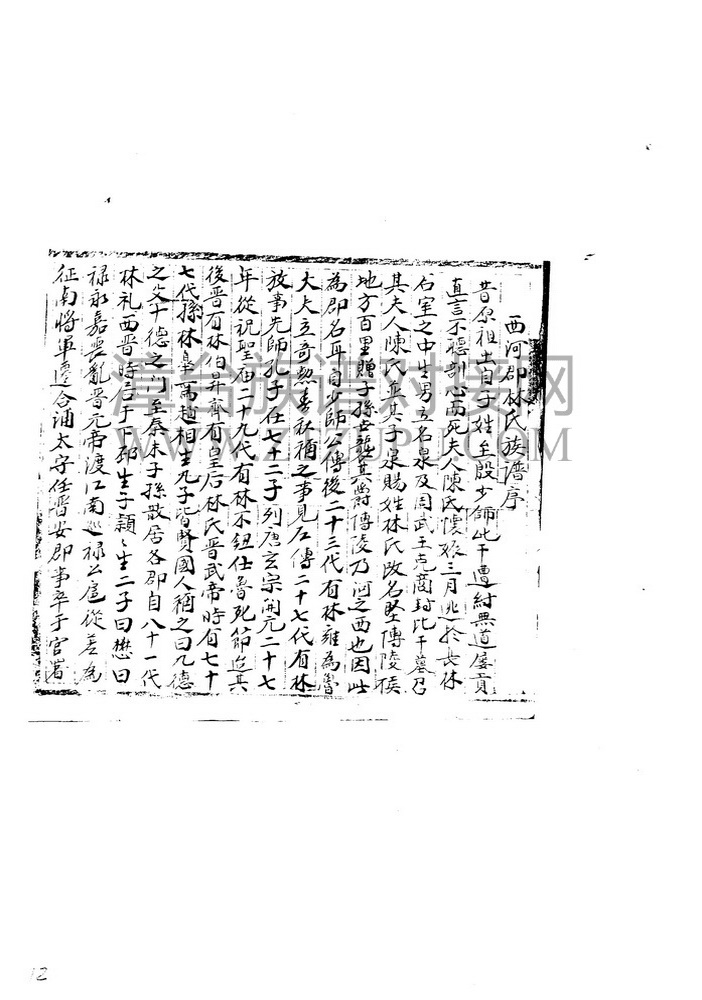 西河郡林氏族譜序
昔原祖出自子姓至殷少師比干遭紂無道屢貢
直言不聽剖心而死夫人陳氏懷娠三月逃於長林
石室之中生男立名泉及周武王克商封比干墓召
其夫人陳氏並其子泉賜姓林氏改名堅博陵侯
地方百里贈子孫世襲其爵傳陵乃河之西也因此
為郡名耳自少師公傳後二十三代有林雍為魯
大夫立奇勲春秋稱之事見左傳二十七代有林
放事先師孔子在七十二子列唐玄宗開元二十七
年從祝聖廟二十九代有林不鈕仕魯死節迨其
後晋有林伯昇齊有皇后林氏晋武帝時有七十
七代孫林皐為趙相生九子皆賢國人稱之曰九德
之父十德之门至秦末子孫散居各郡自八十一代
林礼西晋時言于下邳生子顥〻生二子曰懋曰
禄永嘉喪亂晋元帝渡江南巡禄公扈從差為
征南將軍遷合浦太守任晋安郡事卒于官署
漳台族谱对接网
12